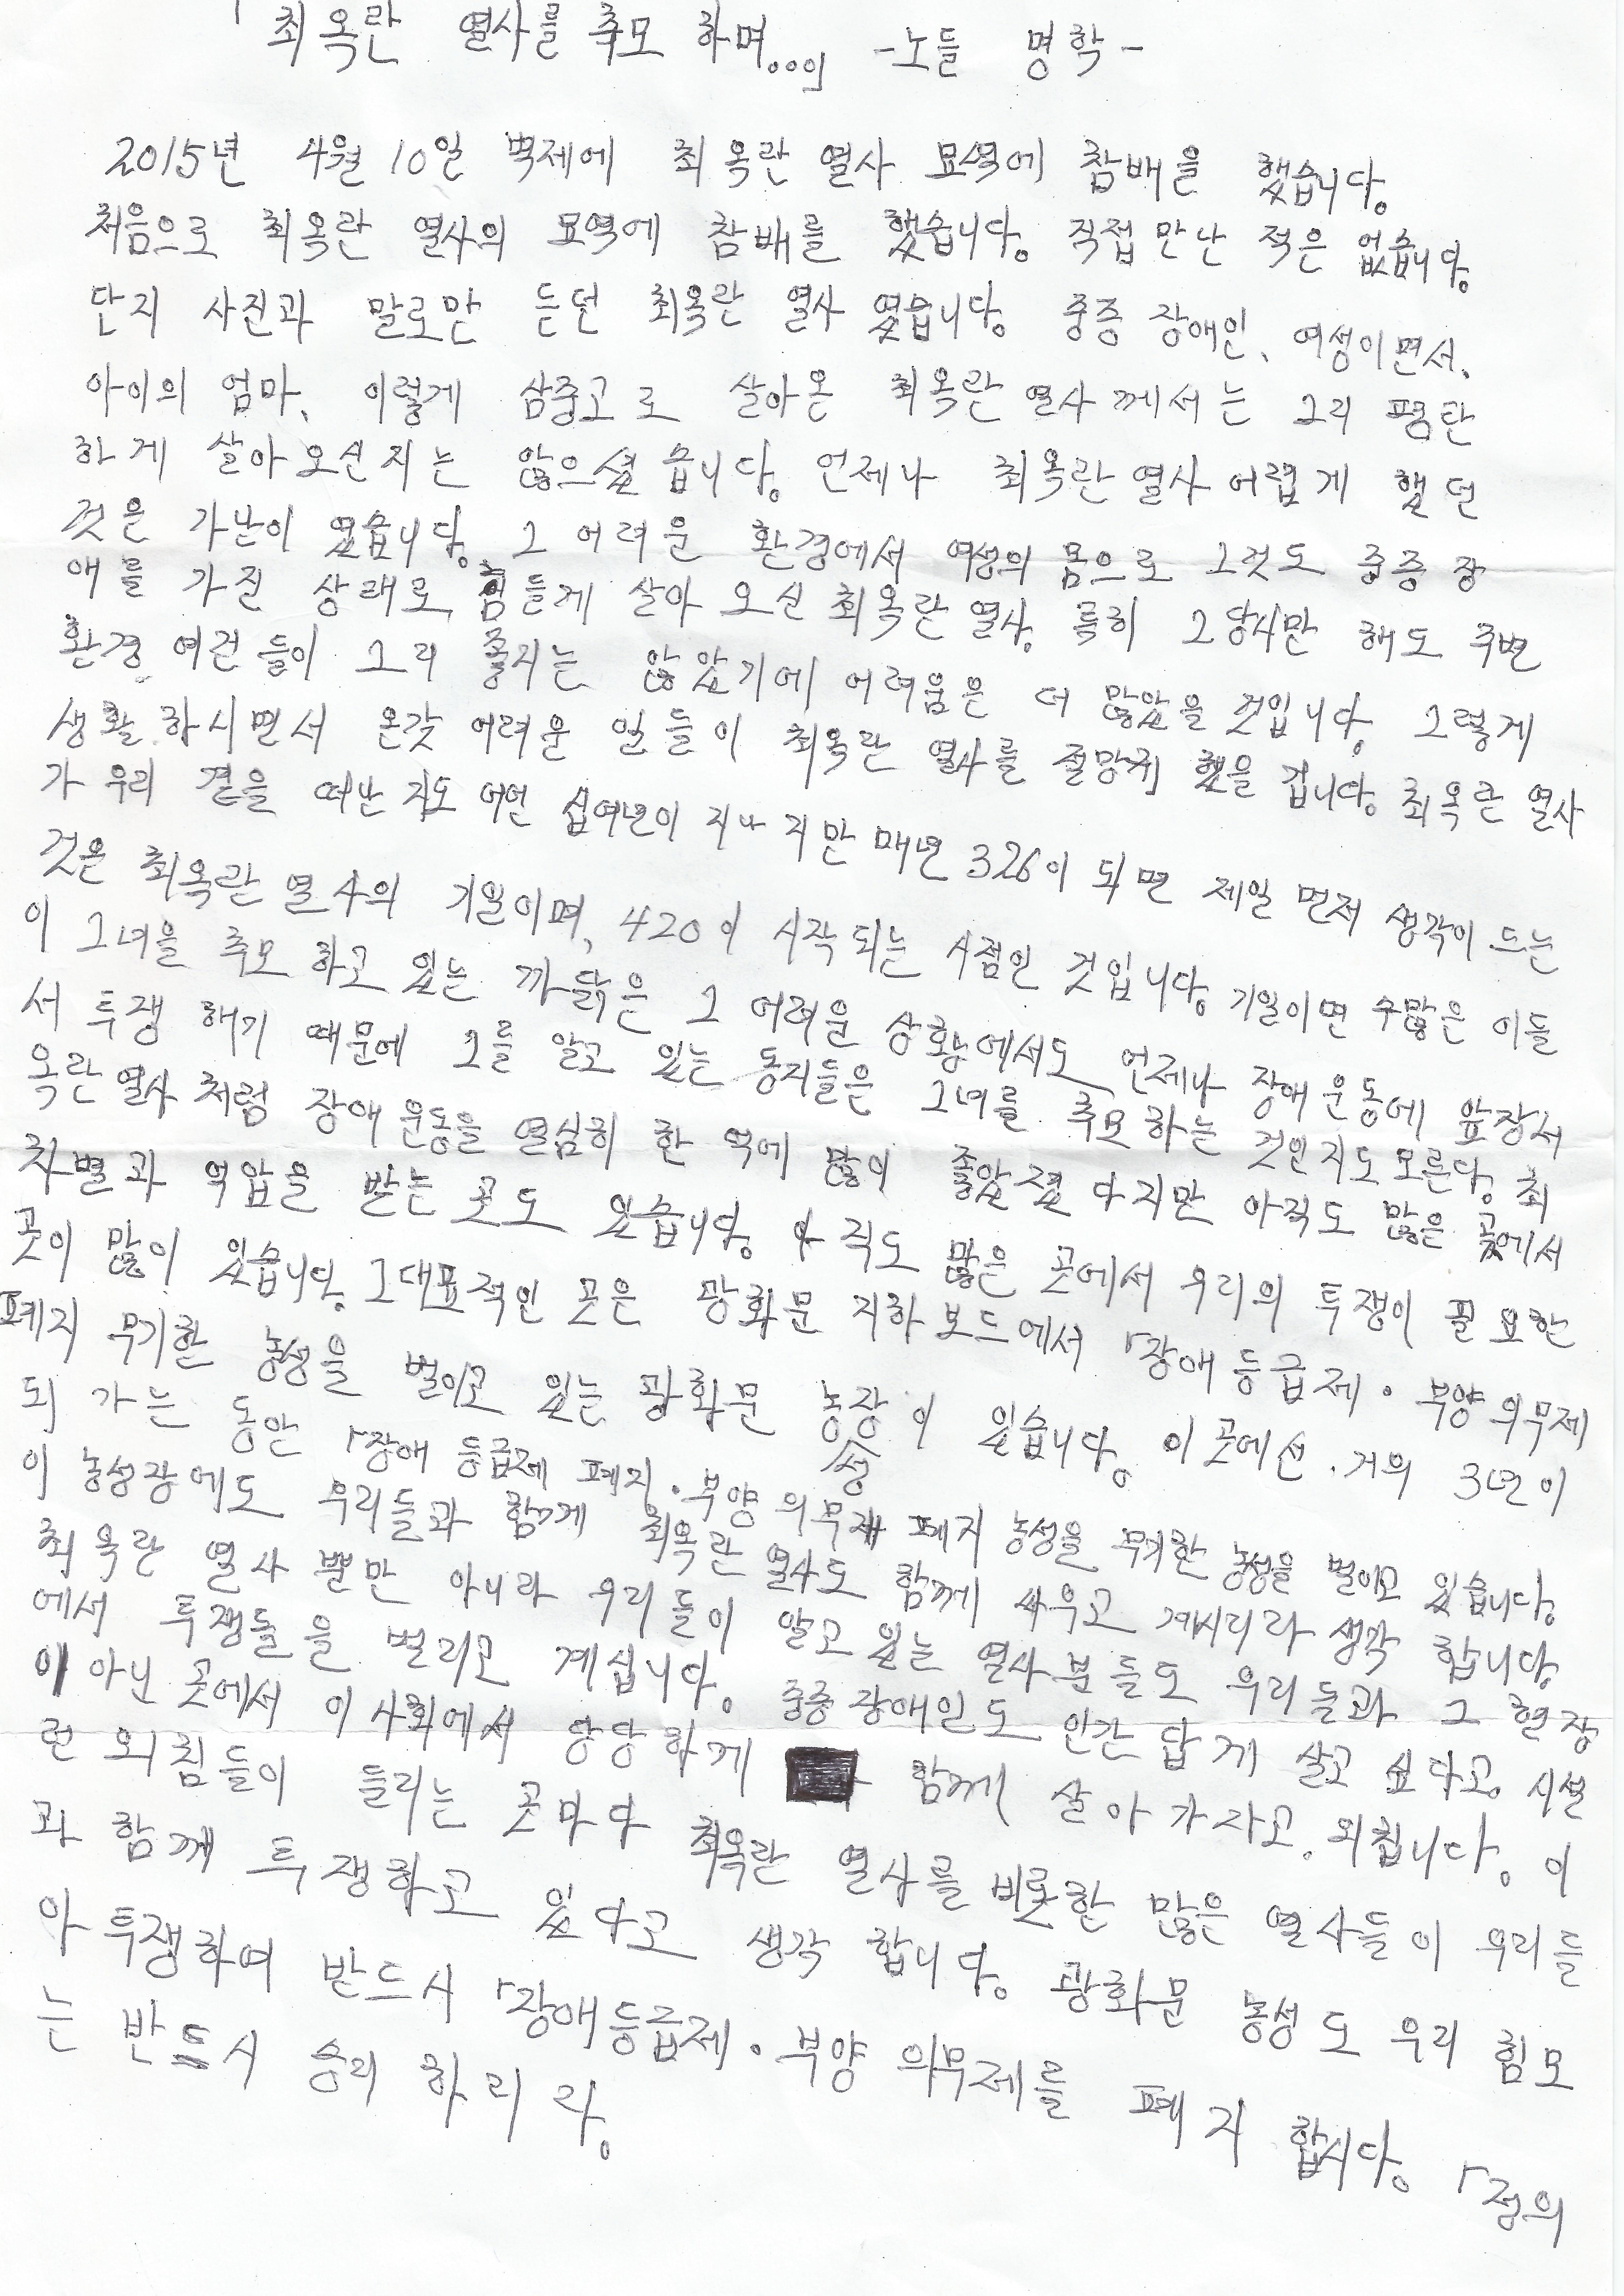 「최옥란 열사를 추모 하며...」 -노들 명학-
2015년 4월 10일 벽제에 최옥란 열사 묘역에 참배을 했습니다.
처음으로 최옥란 열사의 묘역에 참배를 했습니다. 직접 만난 적은 없습니다.
단지 사진과 말로만 듣던 최옥란 열사 였읍니다. 중증 장애인, 여성이면서,
아이의 엄마, 이렇게 삼중고로 살아온 최옥란 열사께서는 그리 평탄
하게 살아오신지는 않으셨습니다. 언제나 최옥란 열사 어렵게 했던
것은 가난이 였습니다. 그 어려운 환경에서 여성의 몸으로 그것도 중증 장
애를 가진 상태로 힘들게 살아 오신 최옥란 열사. 특히 그 당시만 해도 주변
환경 여건들이 그리 좋지는 않았기에 어려움은 더 많았을 것입니다. 그렇게
생활 하시면서 온갖 어려운 일들이 최옥란 열사를 절망케 했을 겁니다. 최옥란 열사
가 우리 곁을 떠난 지도 어언 십여년이 지나지만 매년 326이 되면 제일 먼저 생각이 드는
것은 최옥란 열사의 기일이며, 420이 시작 되는 시점인 것입니다. 기일이면 수많은 이들
이 그녀을 추모 하고 있는 까닭은 그 어려운 상황에서도 언제나 장애 운동에 앞장서
서 투쟁 해기 때문에 그를 알고 있는 동지들은 그녀를 추모 하는 것인지도 모른다. 최
옥란 열사 처럼 장애 운동을 열심히 한 덕에 많이 좋아졌다지만 아직도 많은 곳에서
차별과 억압을 받는 곳도 있습니다. 아직도 많은 곳에서 우리의 투쟁이 필요한
곳이 많이 있습니다. 그 대표적인 곳은 광화문 지하보드에서 「장애 등급제 · 부양 의무제
폐지 무기한 농성을 벌이고 있는 광화문 농성장이 있습니다. 이 곳에선 거의 3년이
되 가는 동안 「장애 등급제 폐지 · 부양 의무제 폐지 농성을 무기한 농성을 벌이고 있습니다.
이 농성장에도 우리들과 함께 최옥란 열사도 함께 싸우고 계시리라 생각 합니다.
최옥란 열사 뿐만 아니라 우리들이 알고 있는 열사 분들도 우리들과 그 현장
에서 투쟁들을 벌리고 계십니다. 중증 장애인도 인간 답게 살고 싶다고. 시설
이 아닌 곳에서 이 사회에서 당당하게 함께 살아 가자고. 외칩니다. 이
런 외침들이 들리는 곳마다 최옥란 열사를 비롯한 많은 열사들이 우리들
과 함께 투쟁하고 있다고 생각 합니다. 광화문 농성도 우리 힘모
아 투쟁하여 반드시 「장애 등급제 · 부양 의무제를 폐지 합시다. 「정의
는 반드시 승리 하리라.